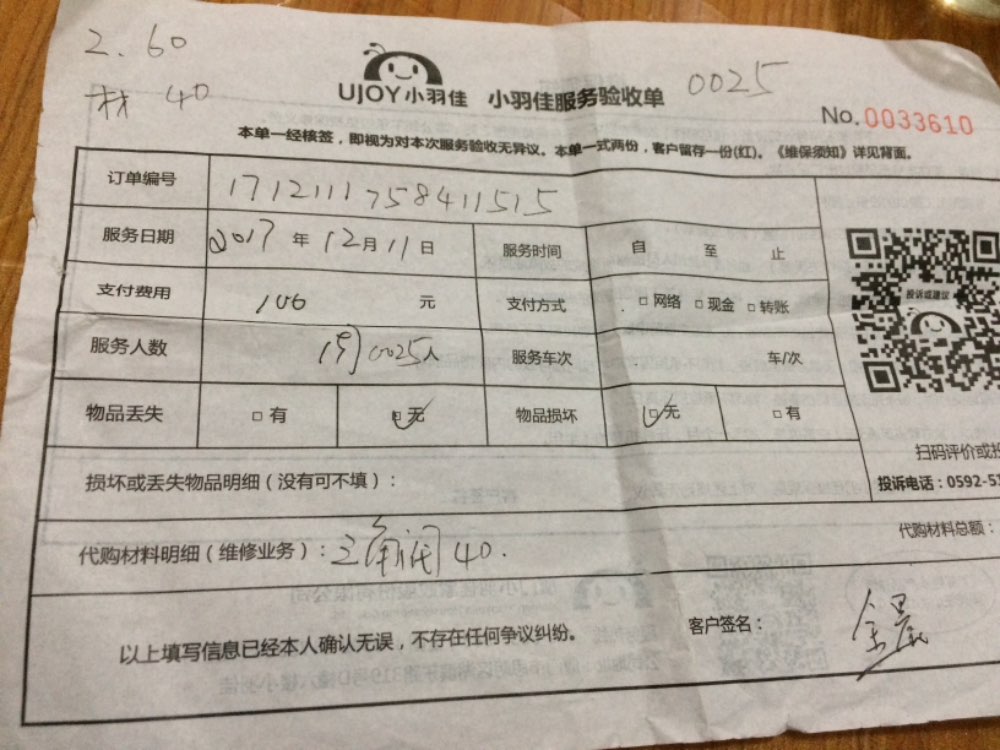 2.60
材 40
UJOY小羽佳 小羽佳服务验收单 0025
No.0033610
本单一经核签，即视为对本次服务验收无异议。本单一式两份，客户留存一份(红)。《维保须知》详见背面。
订单编号 1712111758411515
服务日期 2017 年 12 月 11 日 服务时间 自 至 止
支付费用 100 元 支付方式 □网络 □现金 □转账
服务人数 0025人 服务车次 车/次
物品丢失 □有 □无 物品损坏 □无 □有
投诉或建议
扫码评价或投
投诉电话：0592-53
损坏或丢失物品明细（没有可不填）：
代购材料明细（维修业务）：三角阀 40.
代购材料总额：
以上填写信息已经本人确认无误，不存在任何争议纠纷。
客户签名：